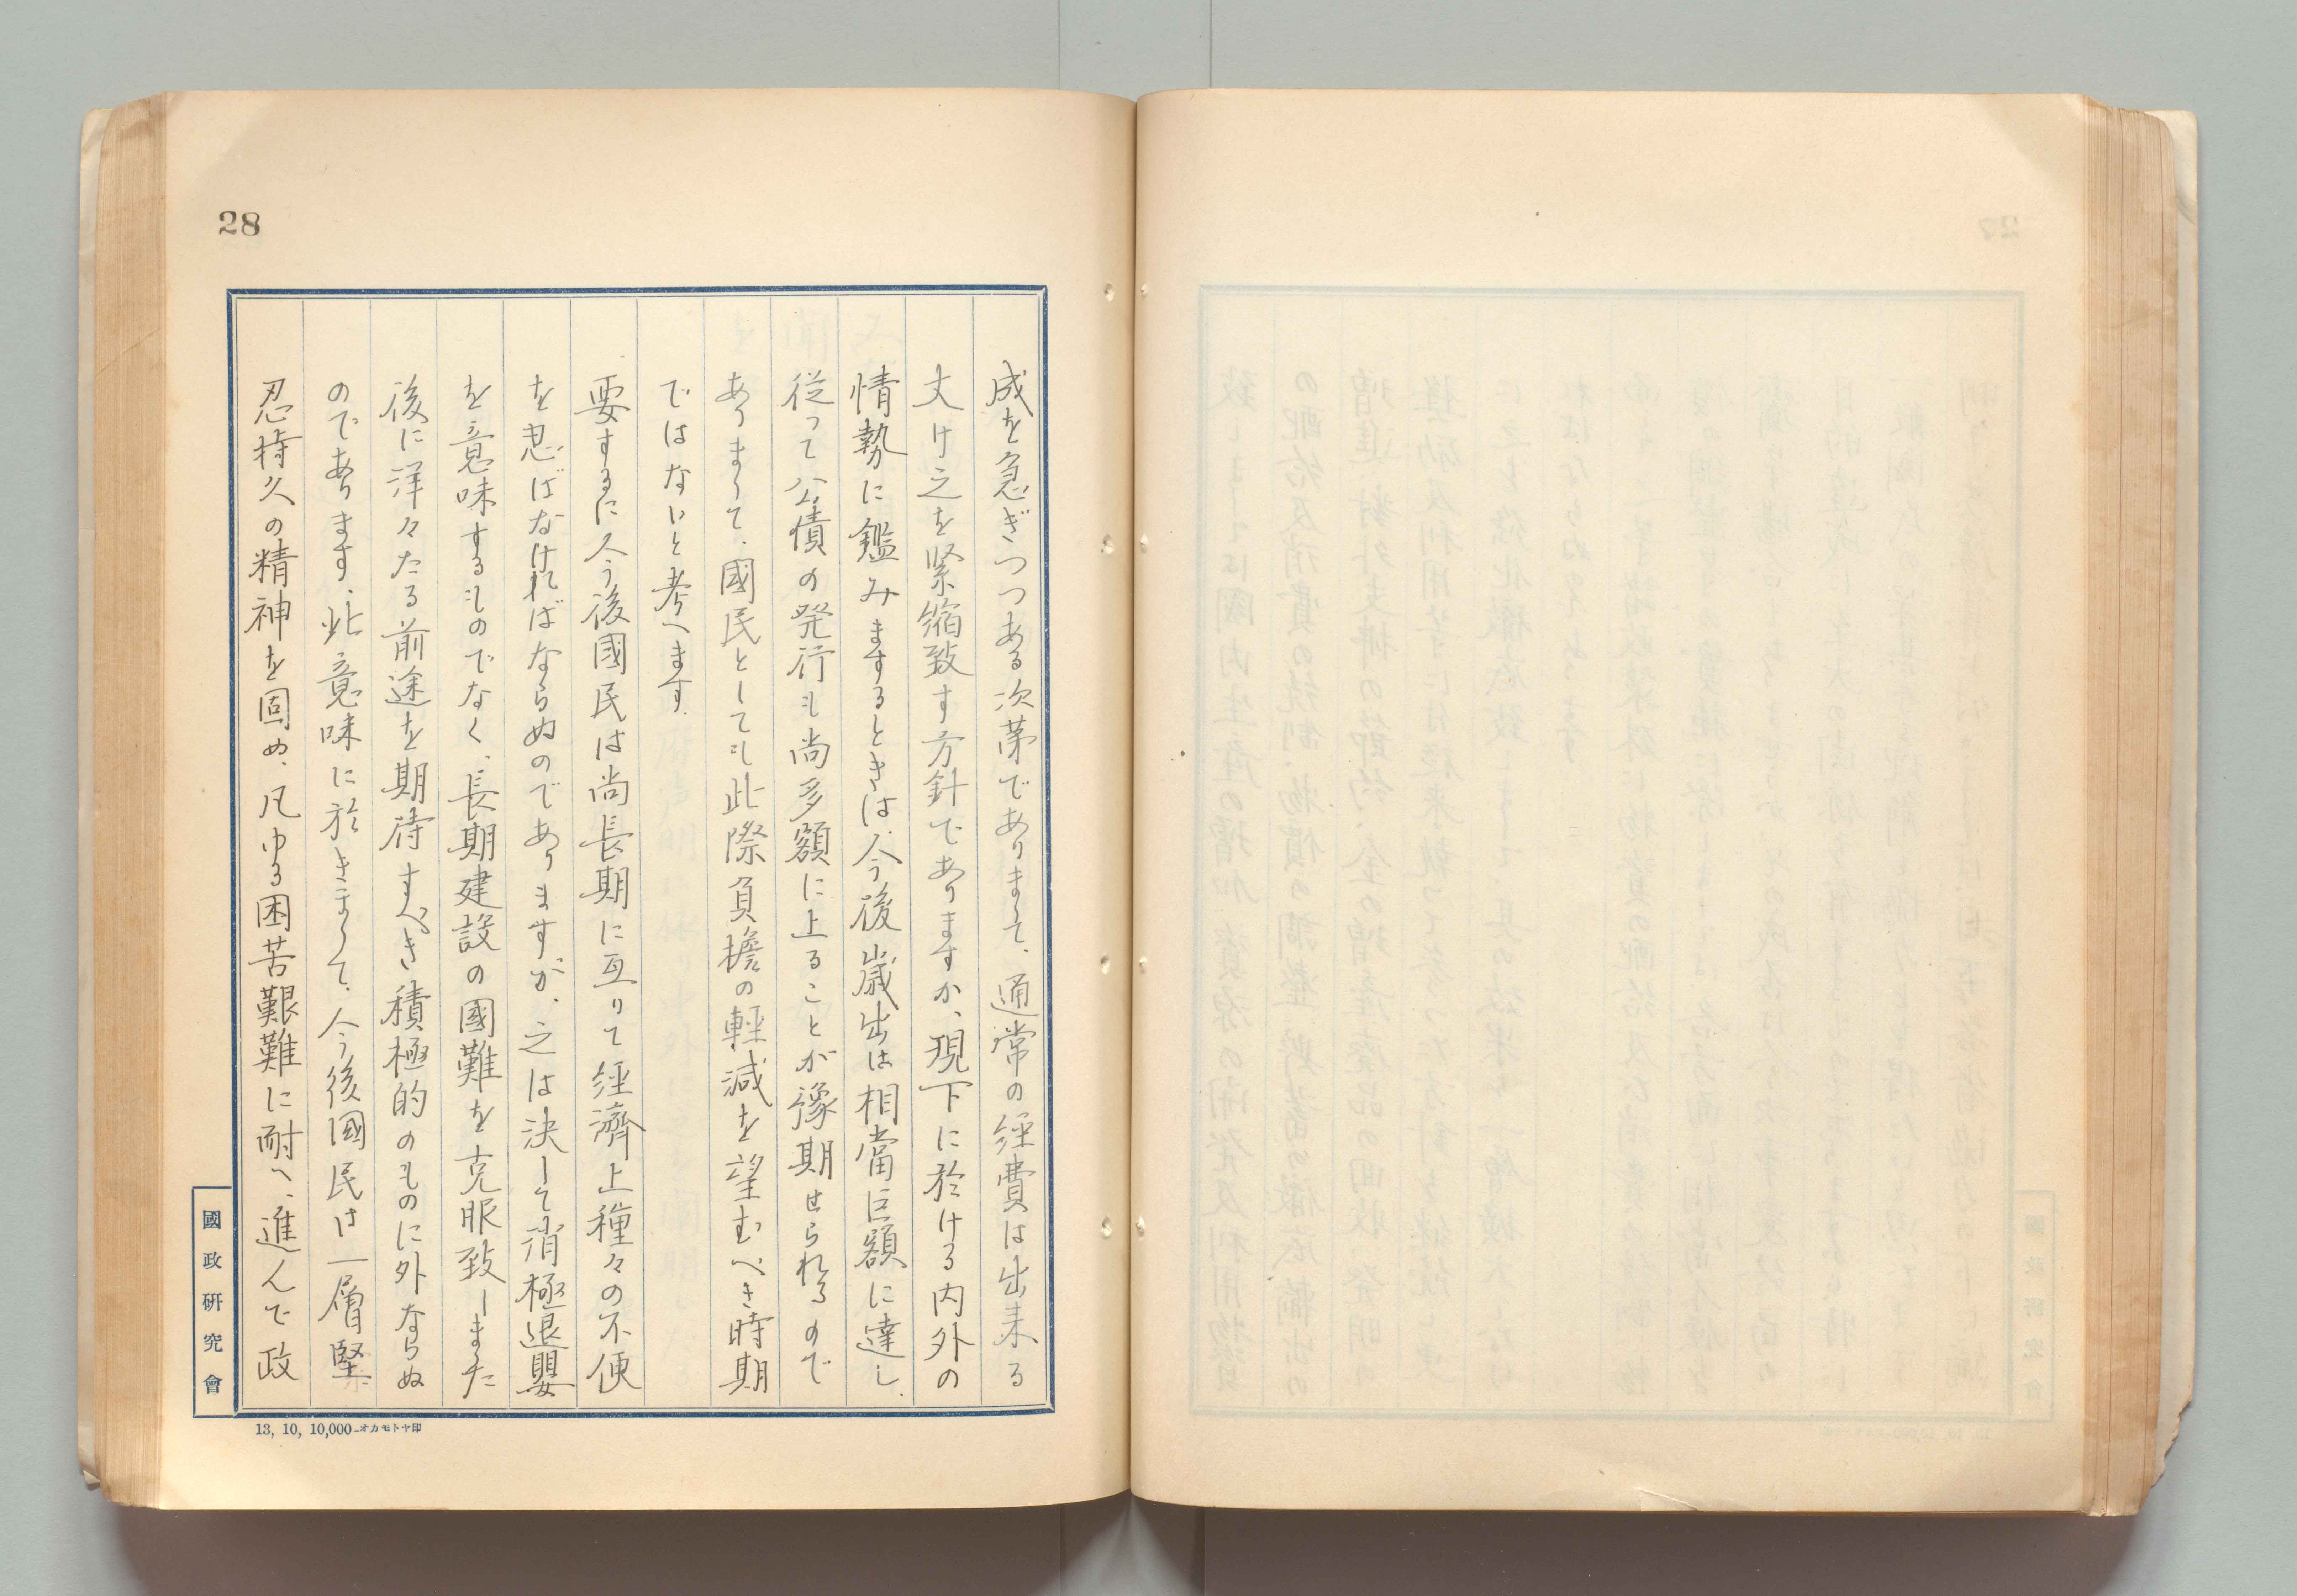 28
成を急ぎつつある次第でありまして、通常の経費は出来る
丈け之を緊縮致す方針でありますが、現下に於ける内外の
情勢に鑑みまするときは、今後歳出は相當巨額に達し、
従って公債の発行も尚多額に上ることが豫期せられるので
ありまして、國民としても此際負擔の輕減を望むべき時期
ではないと考へます。
要するに今後國民は尚長期に亙りて経濟上種々の不便
を忍ばなければならぬのでありますが、之は決して消極退嬰
を意味するものでなく、長期建設の國難を克服致しました
後に洋々たる前途を期待すべき積極的のものに外ならぬ
のであります、此意味に於きまして、今後國民は一層堅
忍持久の精神を固め、凡ゆる困苦艱難に耐へ、進んで政
國政研究會
13, 10, 10,000―オカモトヤ印